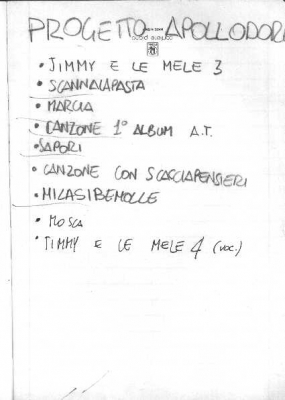 PROGETTO APOLLODORO
• JIMMY E LE MELE 3
• SCANNALAPASTA
• MARCIA
• CANZONE 1° ALBUM A.T.
• SAPORI
• CANZONE CON SCACCIAPENSIERI
• MILASIBEMOLLE
• MOSCA
• JIMMY E LE MELE 4 (VOC.)